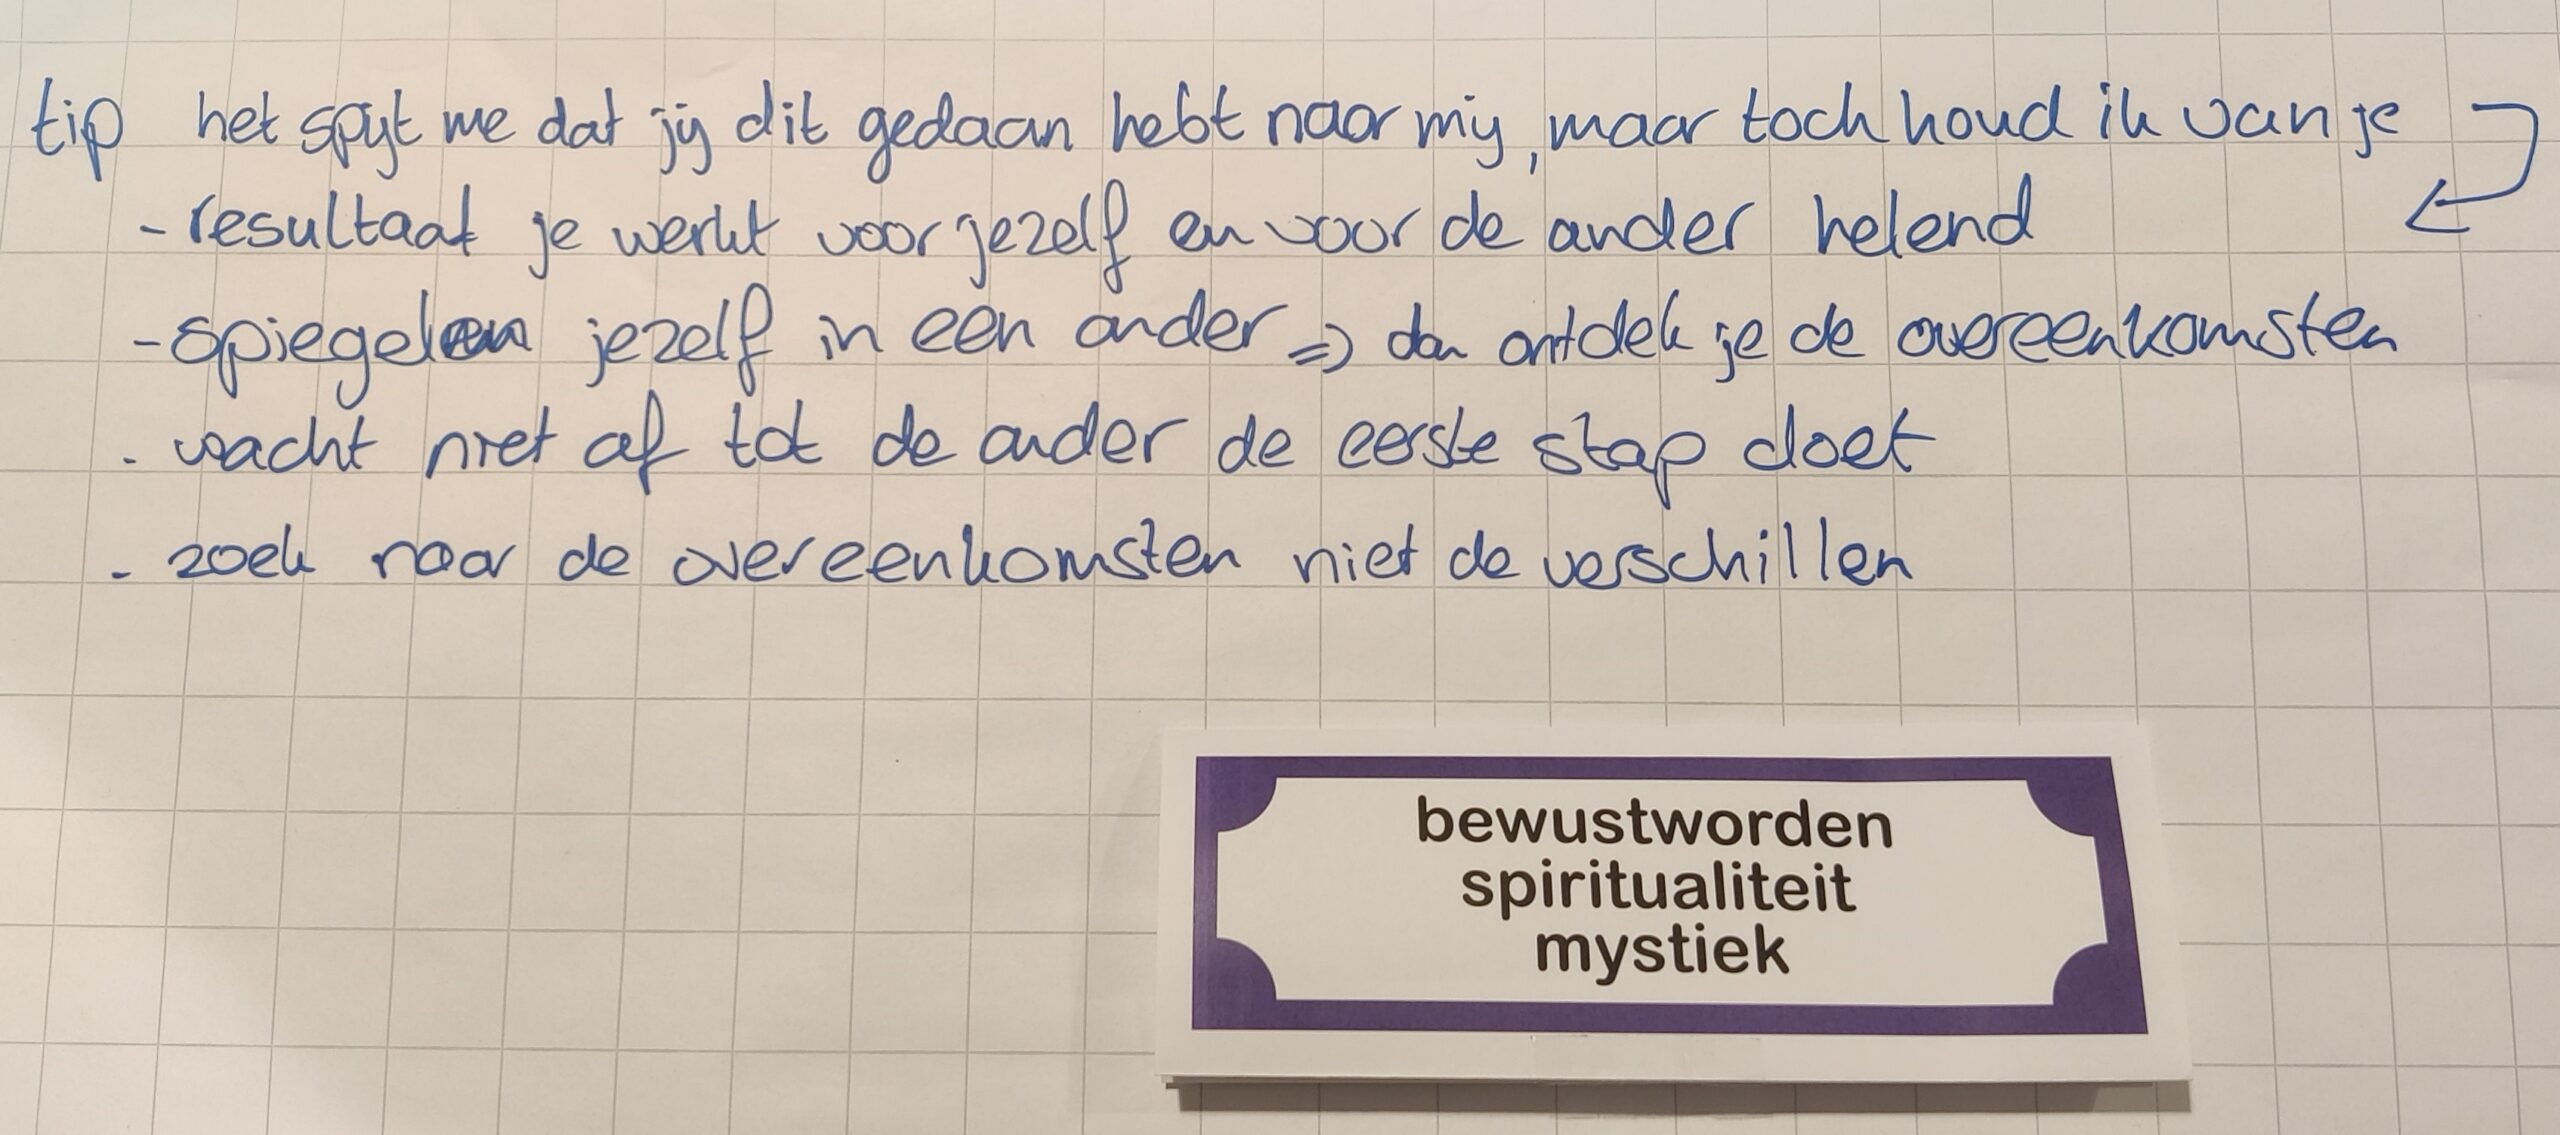 tip het spijt me dat jij dit gedaan hebt naar mij, maar toch houd ik van je
- resultaat je werkt voor jezelf en voor de ander helend
- spiegelen jezelf in een ander => dan ontdek je de overeenkomsten
- wacht niet af tot de ander de eerste stap doet
- zoek naar de overeenkomsten niet de verschillen
bewustworden
spiritualiteit
mystiek